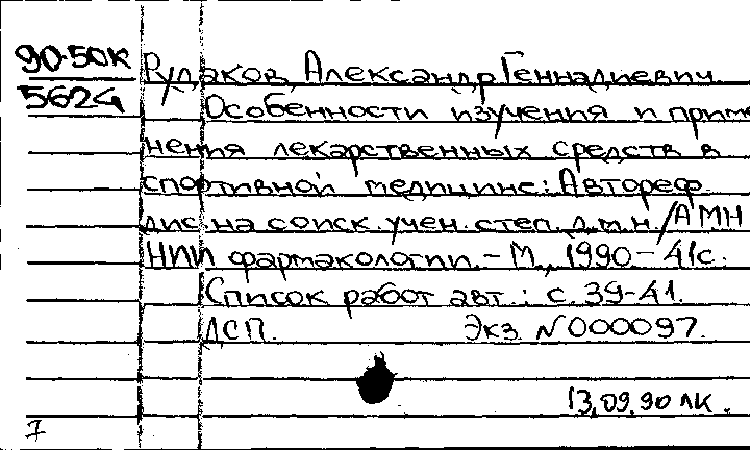 90-50К
5624
Рудаков, Александр Геннадиевич.
Особенности изучения и приме
нения лекарственных средств в
спортивной медицине: Автореф.
дис. на соиск. учен. степ. д.м.н./АМН
НИИ фармакологии. - М., 1990 - 41с.
Список работ авт.: с. 39-41.
ДСП. Экз. N000097.
13.09.90 ЛК.
7